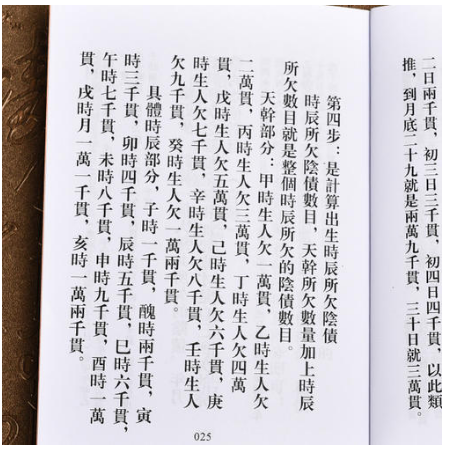 二日兩千貫，初三日三千貫，初四日四千貫，以此類
推，到月底二十九就是兩萬九千貫，三十日就三萬貫。
第四步：是計算出生時辰所欠陰債
時辰所欠陰債數目，天幹所欠數量加上時辰
所欠數目就是整個時辰所欠的陰債數目。
天幹部分：甲時生人欠一萬貫，乙時生人欠
二萬貫，丙時生人欠三萬貫，丁時生人欠四萬
貫，戊時生人欠五萬貫，己時生人欠六千貫，庚
時生人欠七千貫，辛時生人欠八千貫，壬時生人
欠九千貫，癸時生人欠一萬兩千貫。
具體時辰部分，子時一千貫，醜時兩千貫，寅
時三千貫，卯時四千貫，辰時五千貫，巳時六千貫，
午時七千貫，未時八千貫，申時九千貫，酉時一萬
貫，戌時月一萬一千貫，亥時一萬兩千貫。
025